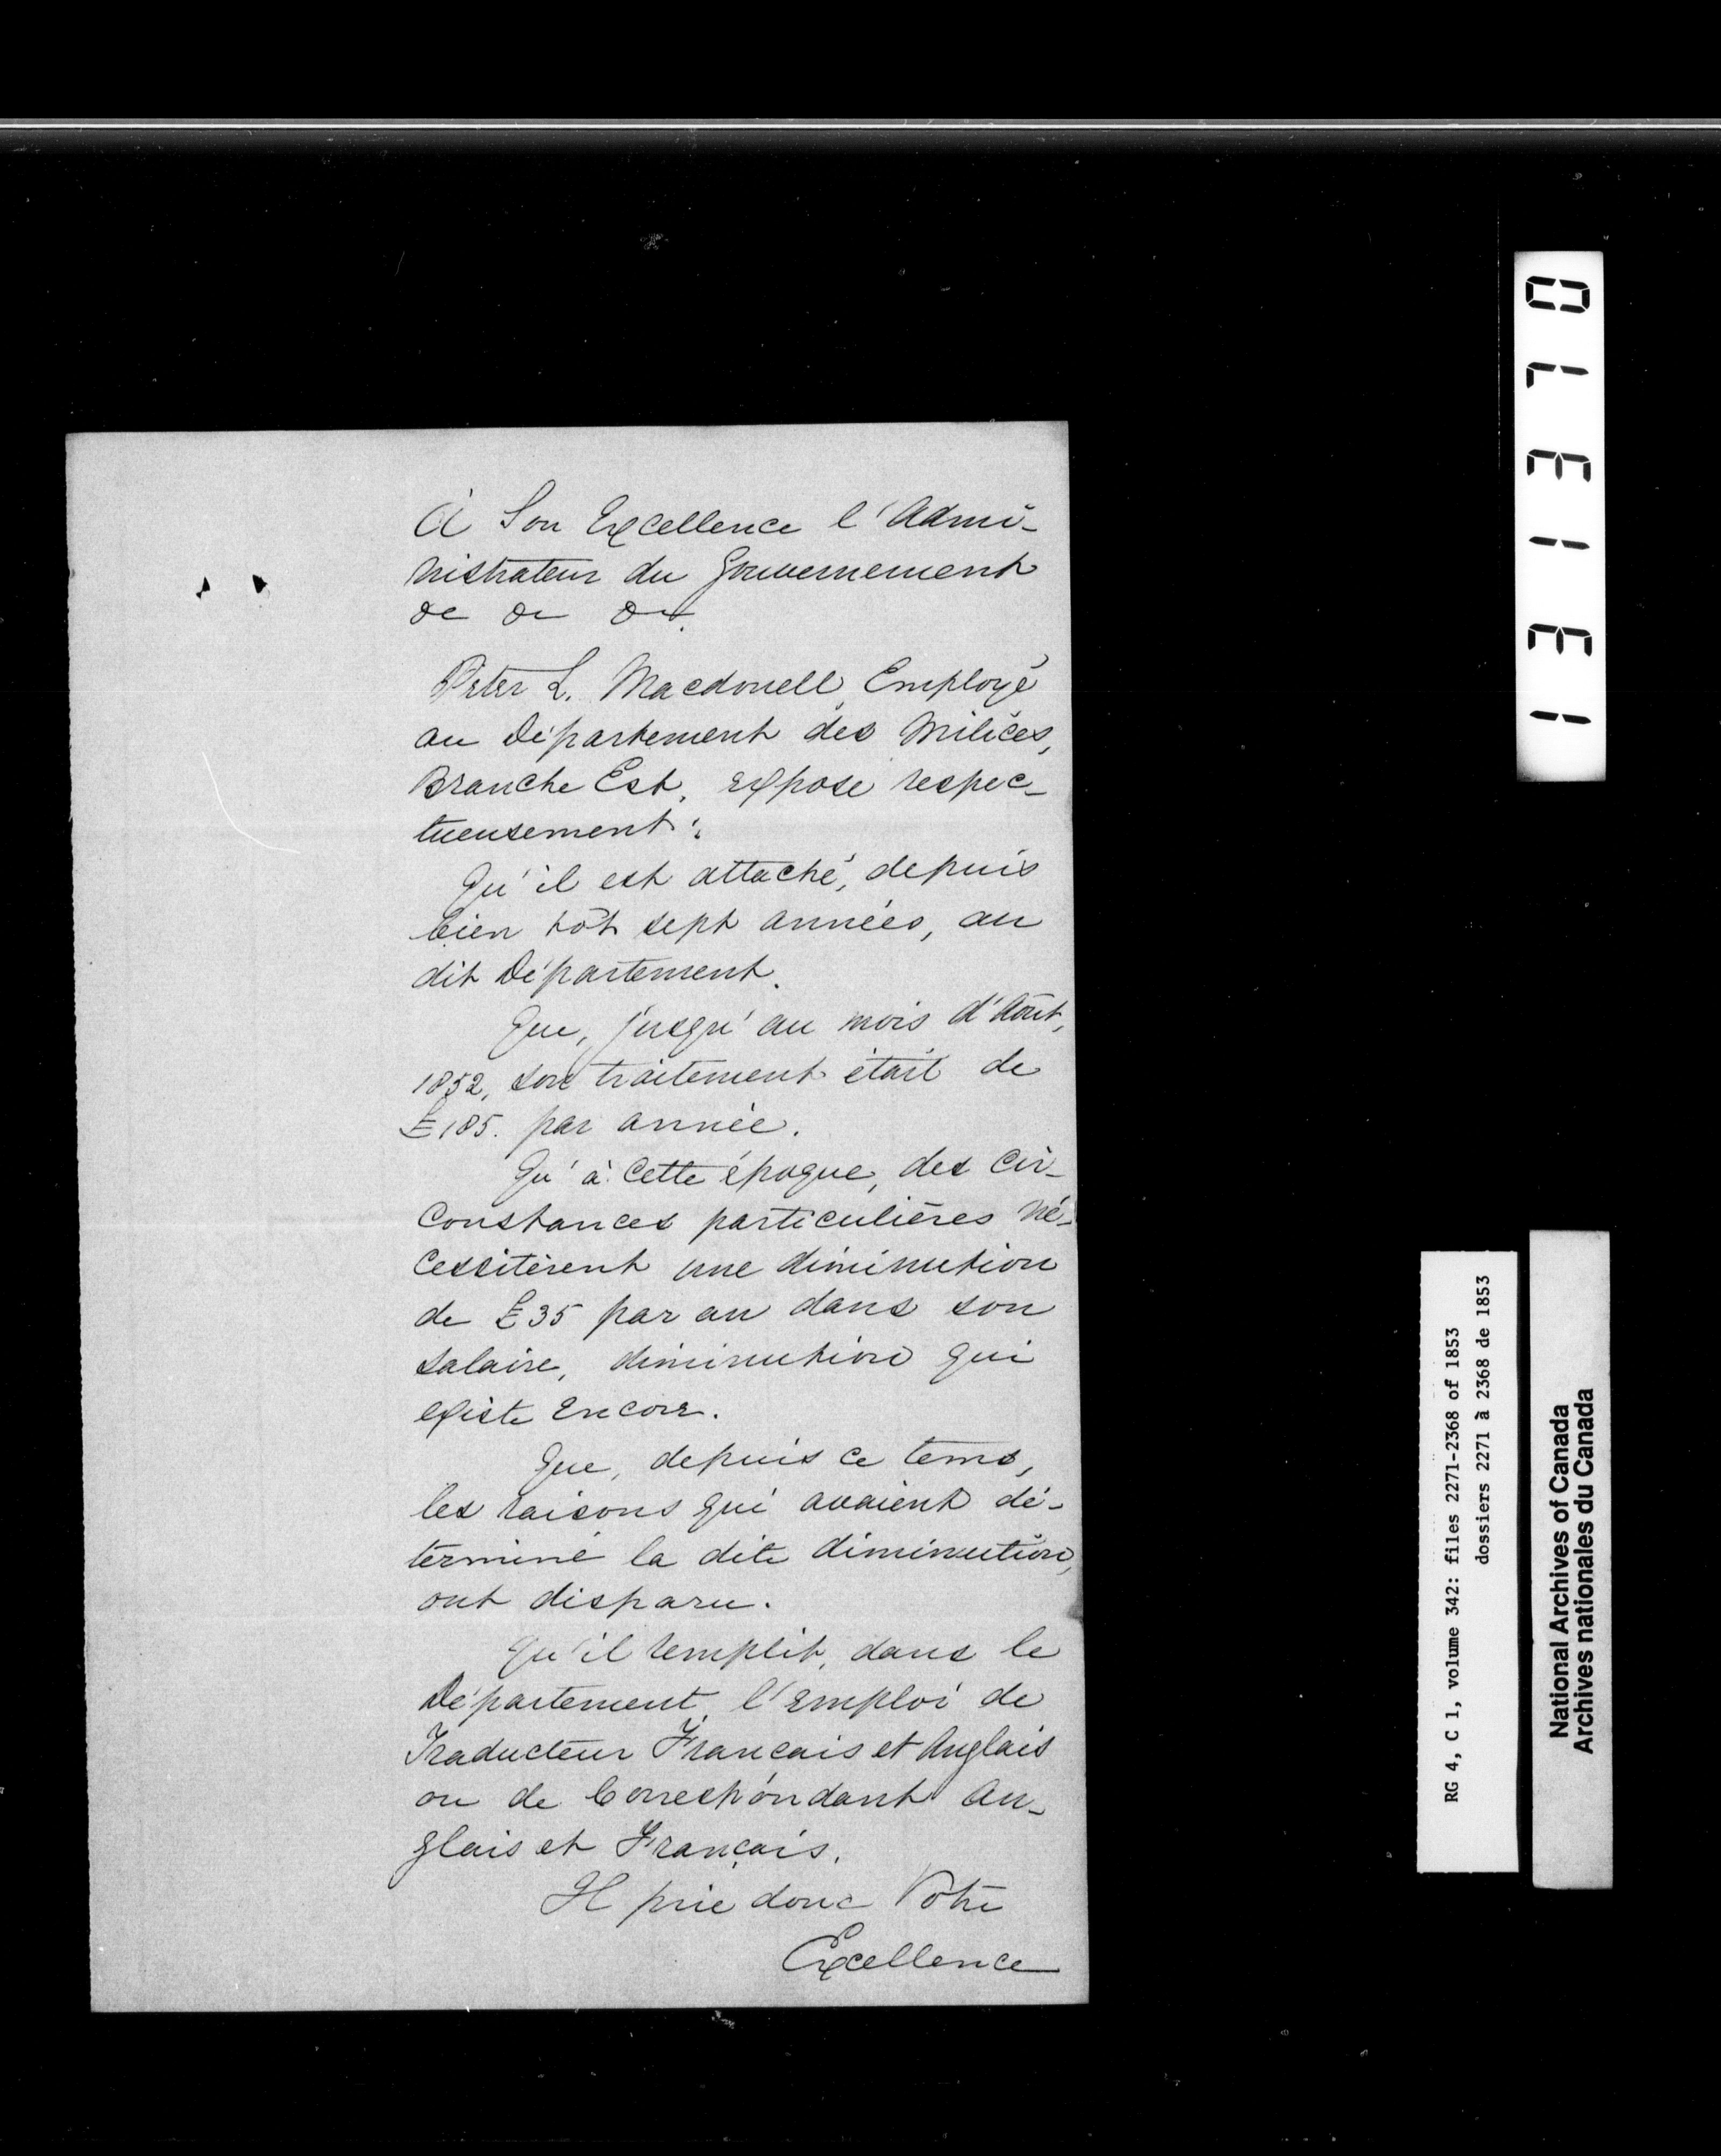 À Son Excellence l'Admi-
nistrateur du Gouvernement
&c &c &c.
Peter L. Macdonell, Employé
au Département des Milices,
Branche Est, expose respec-
tueusement:
Qu'il est attaché, depuis
bien tôt sept années, au
dit Département.
Que, jusqu'au mois d'Août,
1852, son traitement était de
£185. par année.
Qu'à cette époque, des cir-
constances particulières né-
cessitèrent une diminution
de £35 par an dans son
salaire, diminution qui
existe encore.
Que, depuis ce tems,
les raisons qui avaient dé-
terminé la dite diminution,
ont disparu.
Qu'il remplit, dans le
Département, l'emploi de
Traducteur Français et Anglais
ou de Correspondant An-
glais et Français.
Il prie donc Votre
Excellence
131370
RG 4, C 1, volume 342: files 2271-2368 of 1853
dossiers 2271 à 2368 de 1853
National Archives of Canada
Archives nationales du Canada